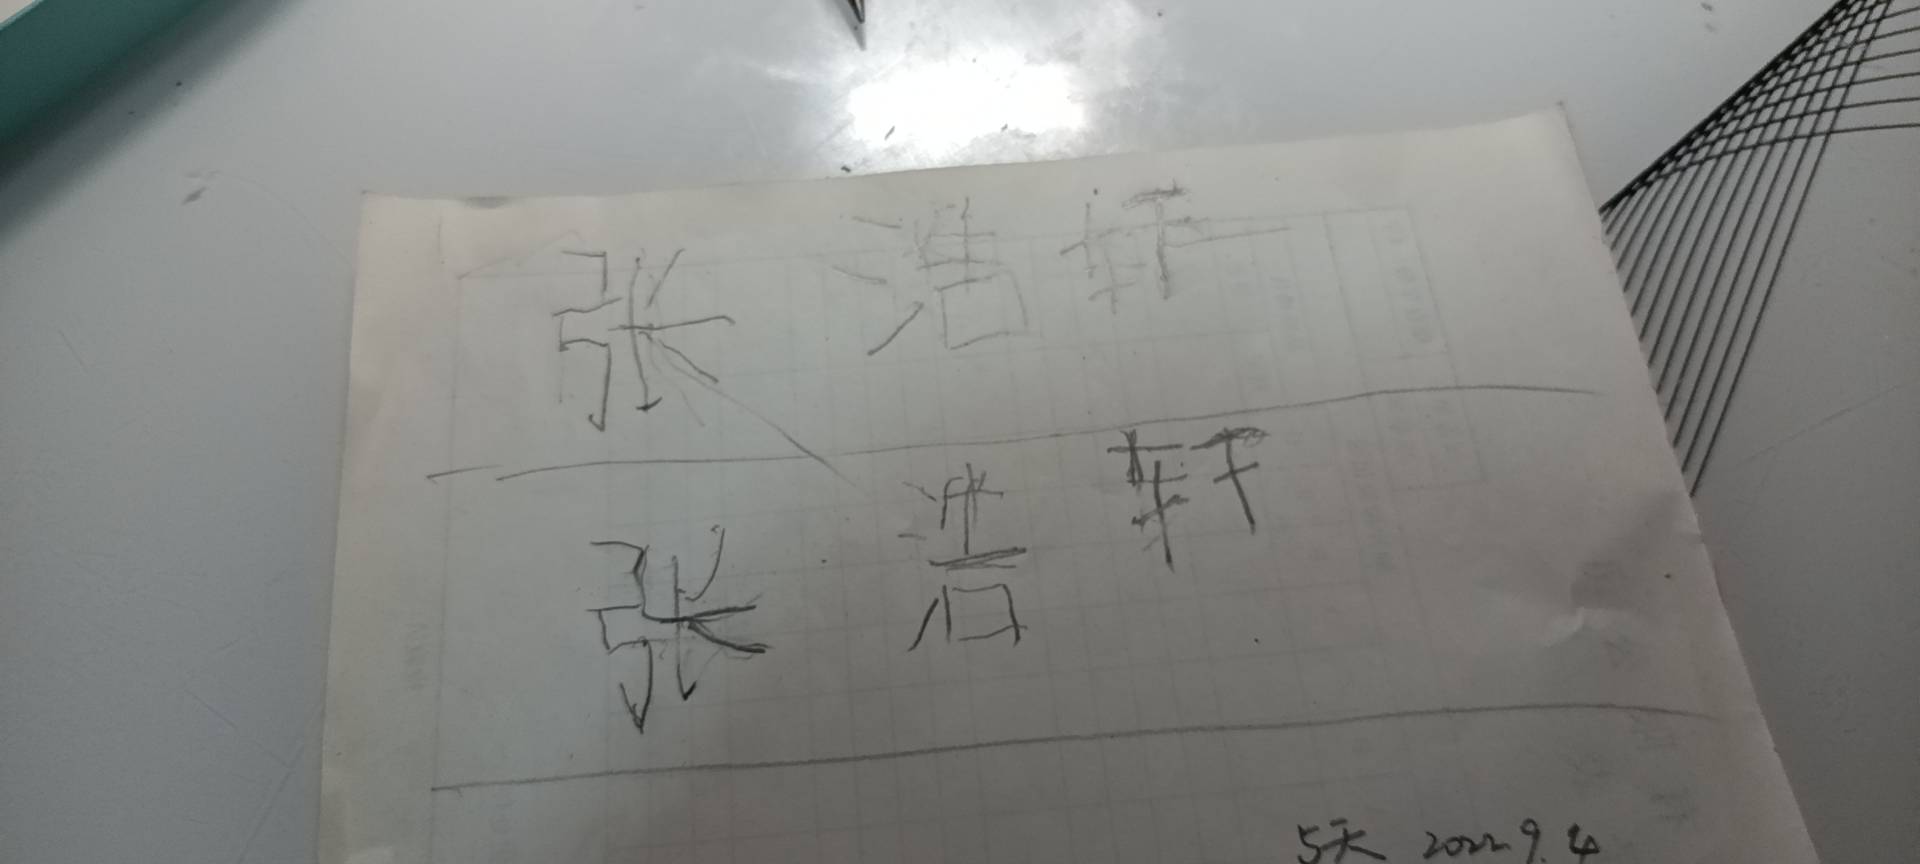 张浩轩
张浩轩
5天 2022.9.4